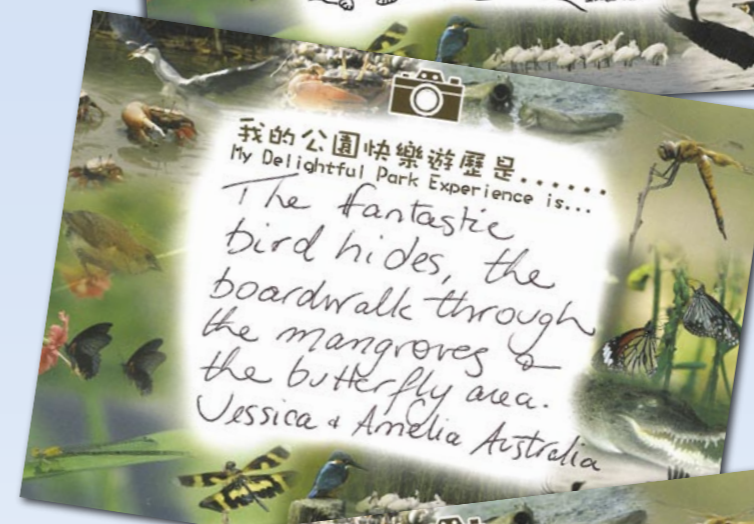 我的公園快樂遊歷是......
My Delightful Park Experience is...
The fantastic
bird hides, the
boardwalk through
the mangroves &
the butterfly area.
Jessica & Amelia Australia